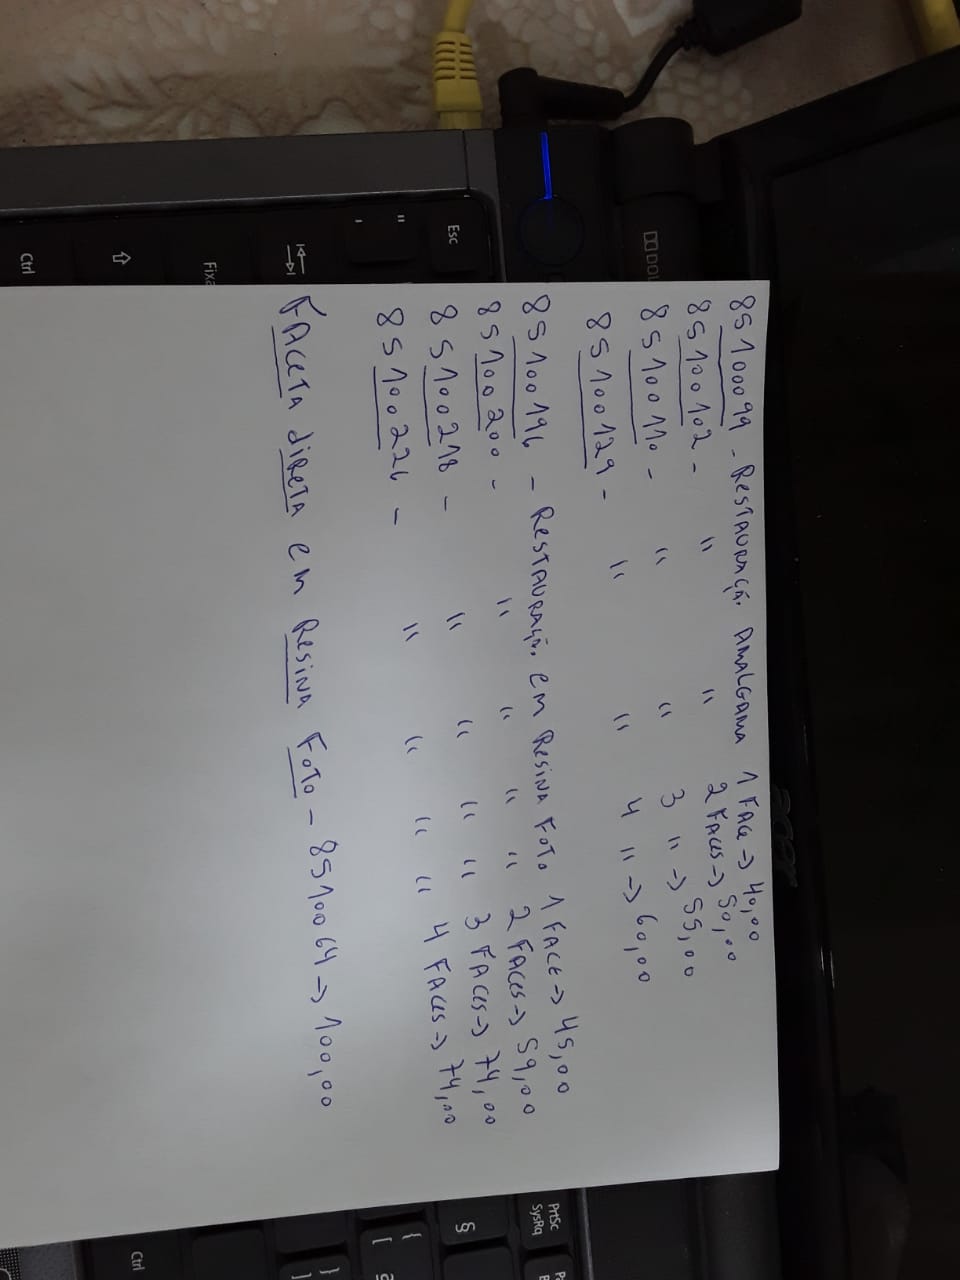 85100099 - RESTAURAÇÃO AMALGAMA 1 FACE -> 40,00
85100102 - " " 2 FACES -> 50,00
85100110 - " " 3 " -> 55,00
85100129 - " " 4 " -> 60,00
85100196 - RESTAURAÇÃO EM RESINA FOTO 1 FACE -> 45,00
85100200 - " " " " 2 FACES -> 59,00
85100218 - " " " " 3 FACES -> 74,00
85100226 - " " " " 4 FACES -> 74,00
FACETA DIRETA EM RESINA FOTO - 8510064 -> 100,00
Esc
" '
Fixa
Ctrl
acer
PrtSc
SysRq
§
{ [
} ]
Ctrl